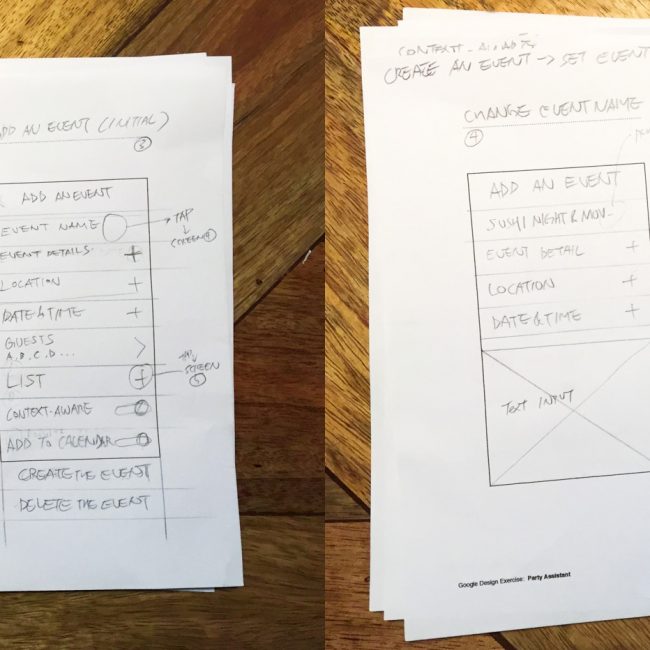 ADD AN EVENT (INITIAL)
3
ADD AN EVENT
EVENT NAME
TAP
SCREEN 4
EVENT DETAILS +
LOCATION +
DATE & TIME +
GUESTS
A, B, C, D... >
LIST +
TAP
SCREEN
5
CONTEXT-AWARE
ADD TO CALENDAR
CREATE THE EVENT
DELETE THE EVENT
CONTEXT-
CREATE AN EVENT → SET EVENT
CHANGE EVENT NAME
4
ADD AN EVENT
SUSHI NIGHT & MOV-
EVENT DETAIL +
LOCATION +
DATE & TIME +
TEXT INPUT
Google Design Exercise: Party Assistant